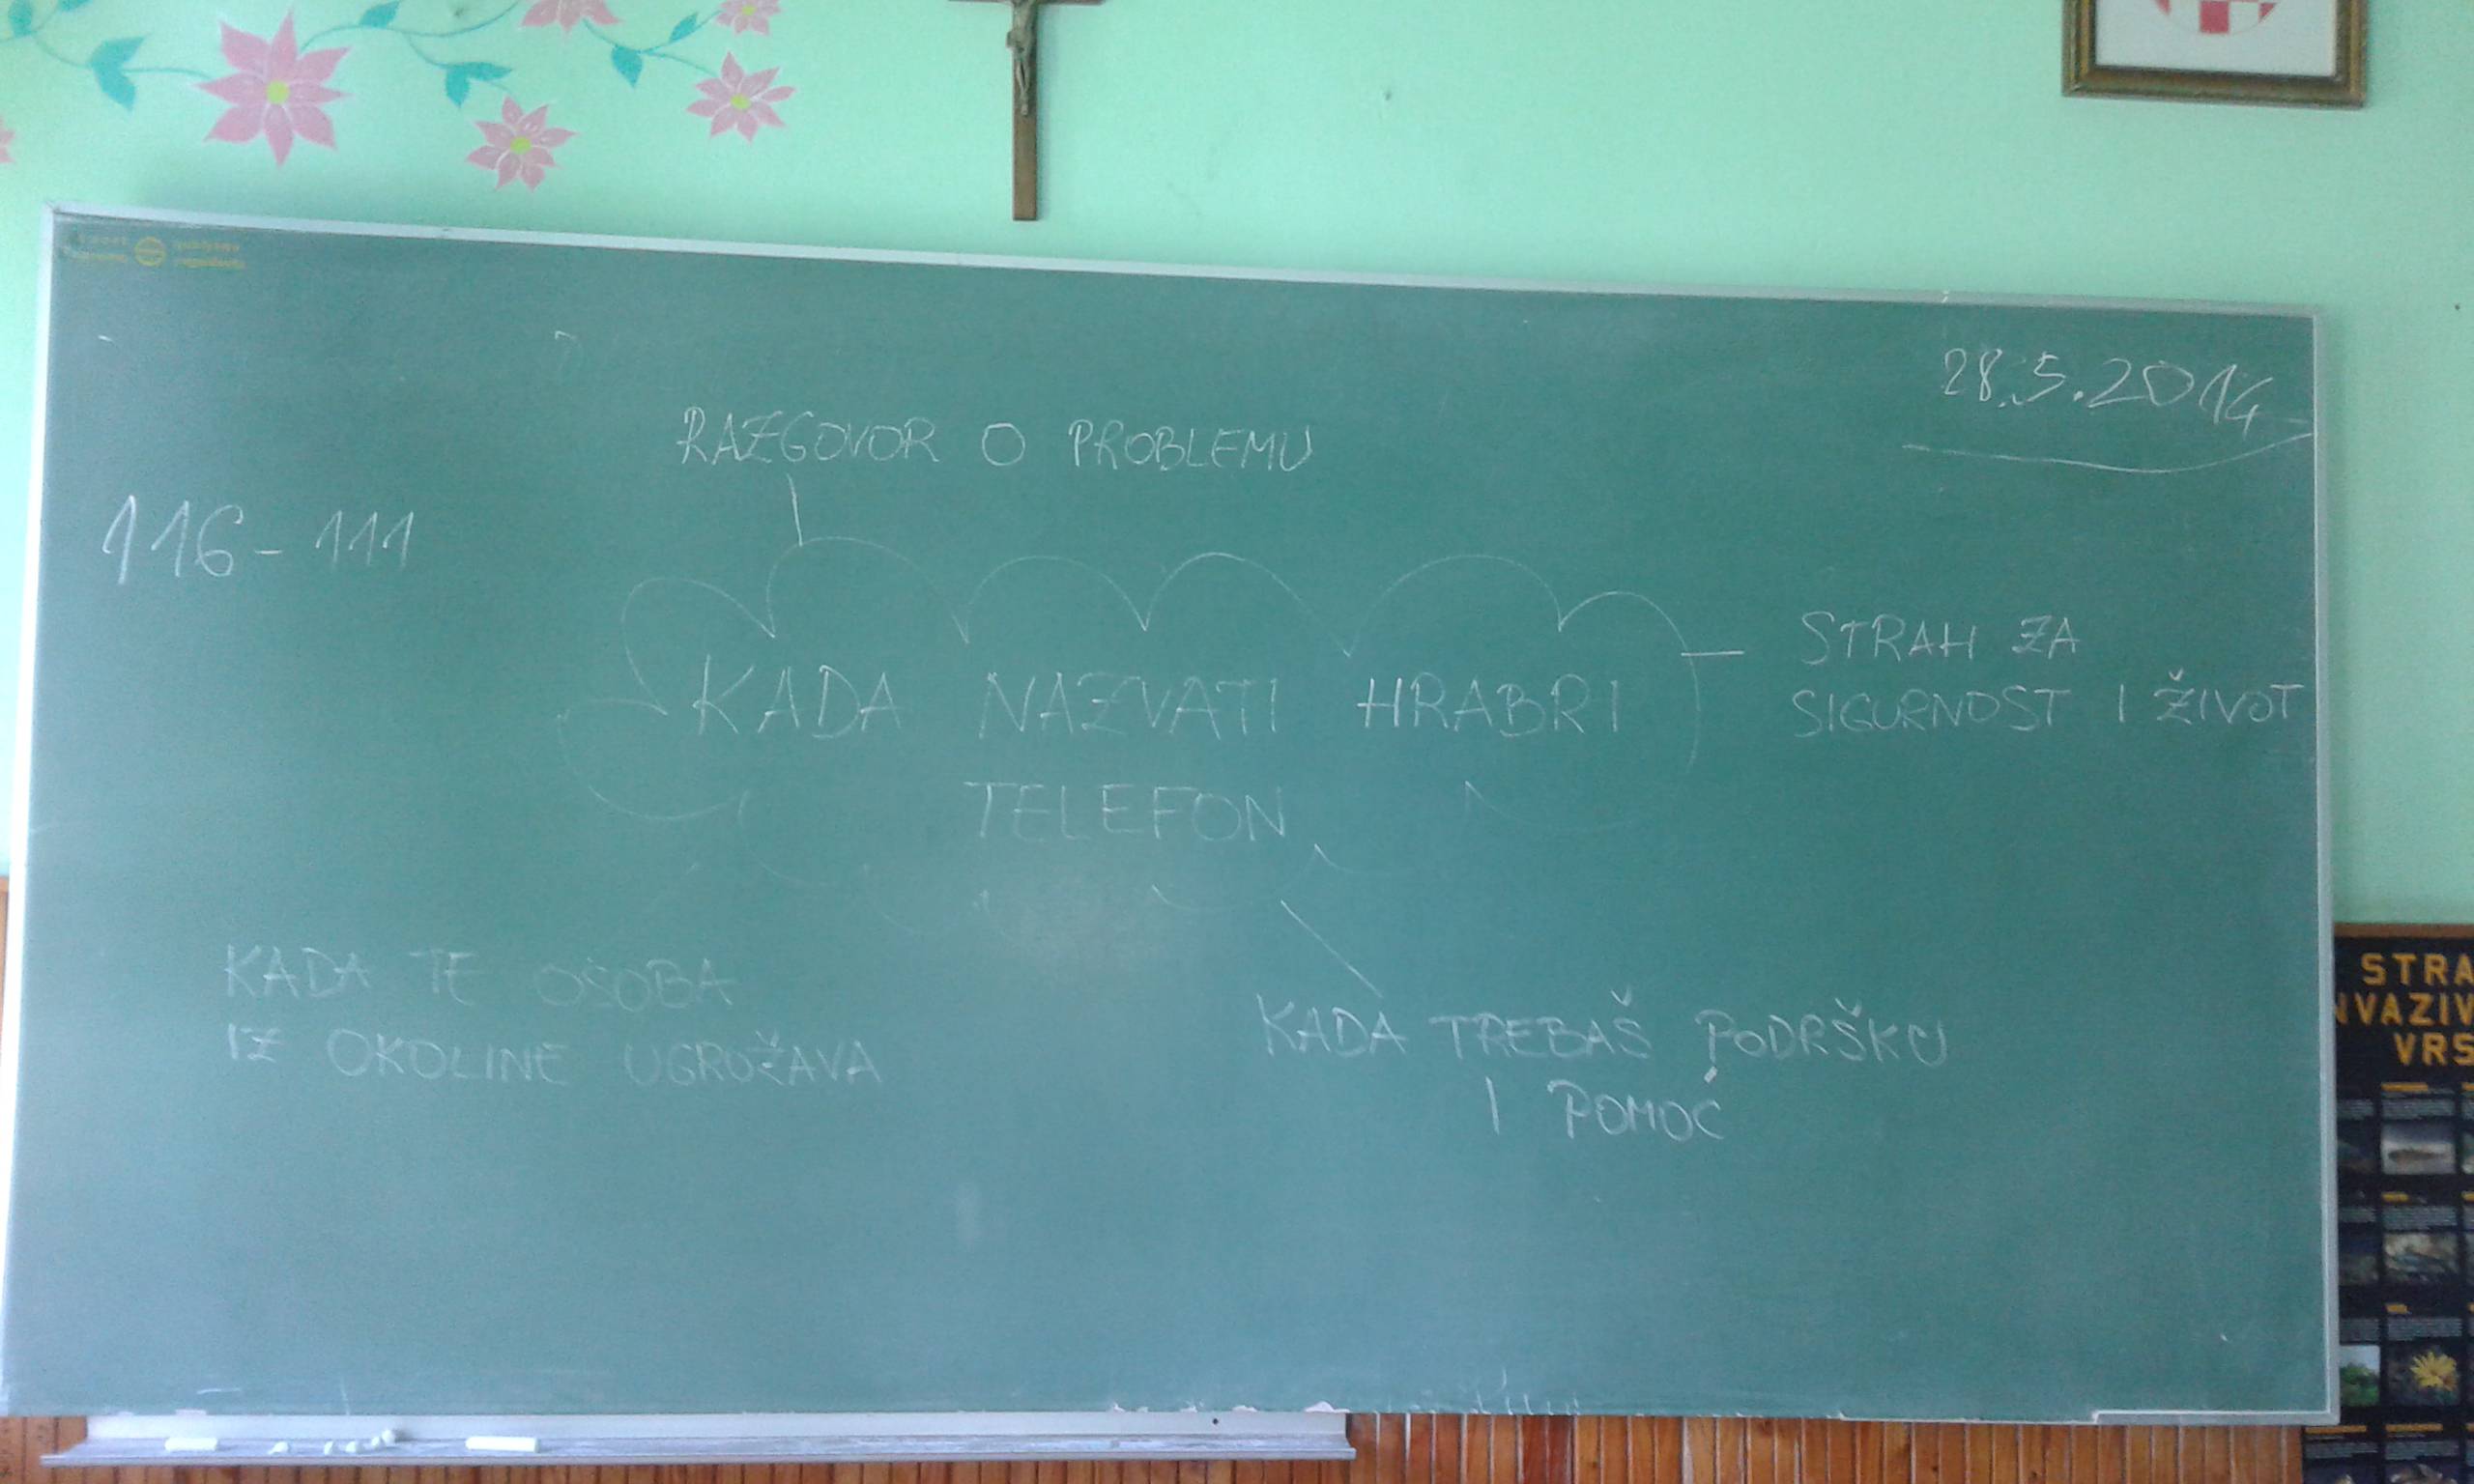 28.5.2014.
RAZGOVOR O PROBLEMU
116-111
STRAH ZA
SIGURNOST I ŽIVOT
KADA NAZVATI HRABRI
TELEFON
KADA TE OSOBA
IZ OKOLINE UGROŽAVA
KADA TREBAŠ PODRŠKU
I POMOĆ
STRA
NVAZIV
VRS